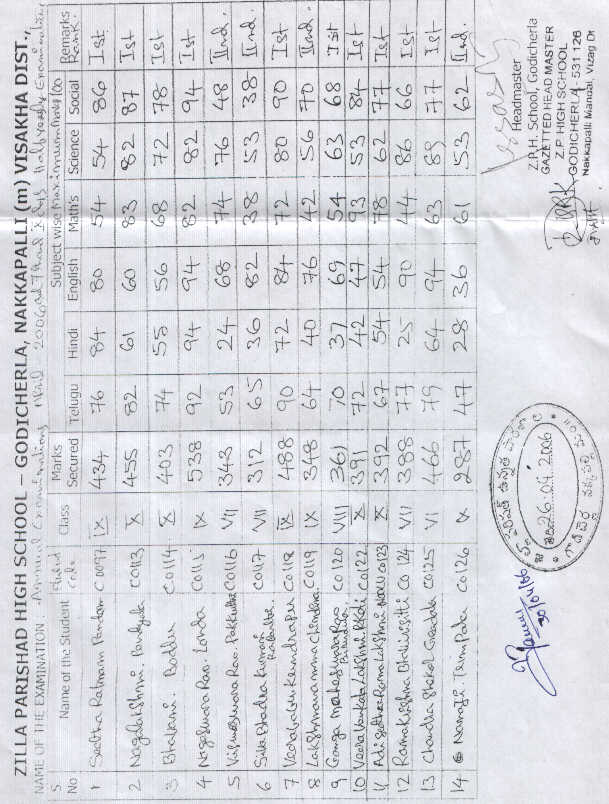 ZILLA PARISHAD HIGH SCHOOL – GODICHERLA, NAKKAPALLI (m) VISAKHA DIST.,
NAME OF THE EXAMINATION: Annual Examinations April - 2006 and Half yearly Examination
S No Name of the Student Student Code Class Marks Secured Subject wise Maximum Marks 100 Remarks Rank.
Telugu Hindi English Math's Science Social
1 Seetha Ratnam Pandam C0097 IX 434 76 84 80 54 54 86 Ist
2 Nagalakshmi. C0113 X 455 82 61 60 83 82 87 Ist
3 Bhavani. Boddu C0114 X 403 74 55 56 68 72 78 Ist
4 Nageswara Rao. Landa C0115 IX 538 92 94 94 82 82 94 Ist
5 Visweswara Rao. C0116 VII 343 53 24 68 74 76 48 IInd.
6 Siva Bhadra Kumari C0117 VII 312 65 36 82 38 53 38 IInd.
7 Veerababu C0118 IX 488 90 72 84 72 80 90 Ist
8 Lakshmanamma Chindha C0119 IX 348 64 40 76 42 56 70 IInd.
9 Ganga Maheswara Rao C0120 VIII 361 70 37 69 54 63 68 Ist
10 Veera Venkata Lakshmi C0122 X 391 72 42 47 93 53 84 Ist
11 Adi Seetha Rama Lakshmi C0123 X 392 67 54 54 78 62 77 Ist
12 Rama Krishna C0124 VII 388 77 25 90 44 86 66 Ist
13 Chandra Shekar Garadda C0125 VI 466 79 64 94 63 89 77 Ist
14 Namoji. C0126 X 287 47 28 36 61 53 62 IInd.
26.04.2006
30/04/06
Headmaster
Z.P.H. School, Godicherla
GAZETTED HEAD MASTER
Z.P. HIGH SCHOOL
GODICHERLA - 531 126
Nakkapalli Mandal, Vizag Dt